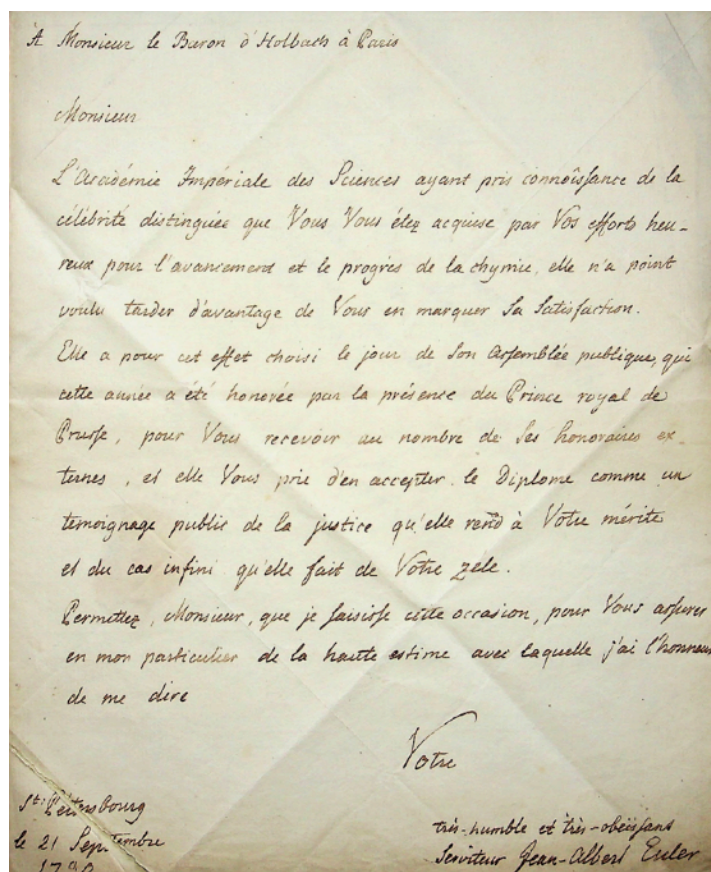 A Monsieur le Baron d'Holbach à Paris
Monsieur
L'Académie Impériale des Sciences ayant pris connoissance de la
célébrité distinguée que Vous Vous étez acquise par Vos efforts heu-
reux pour l'avancement et le progrès de la chymie, elle n'a point
voulu tarder d'avantage de Vous en marquer Sa Satisfaction.
Elle a pour cet effet choisi le jour de Son Assemblée publique, qui
cette année a été honorée par la présence du Prince royal de
Prusse, pour Vous recevoir au nombre de Ses honoraires ex-
ternes, et elle Vous prie d'en accepter le Diplome comme un
temoignage public de la justice qu'elle rend à Votre mérite
et du cas infini qu'elle fait de Votre zele.
Permettez, Monsieur, que je saisisse cette occasion, pour Vous assurer
en mon particulier de la haute estime avec laquelle j'ai l'honneur
de me dire
Votre
très-humble et très-obéissans
Serviteur Jean-Albert Euler
St: Petersbourg
le 21 Septembre
1780